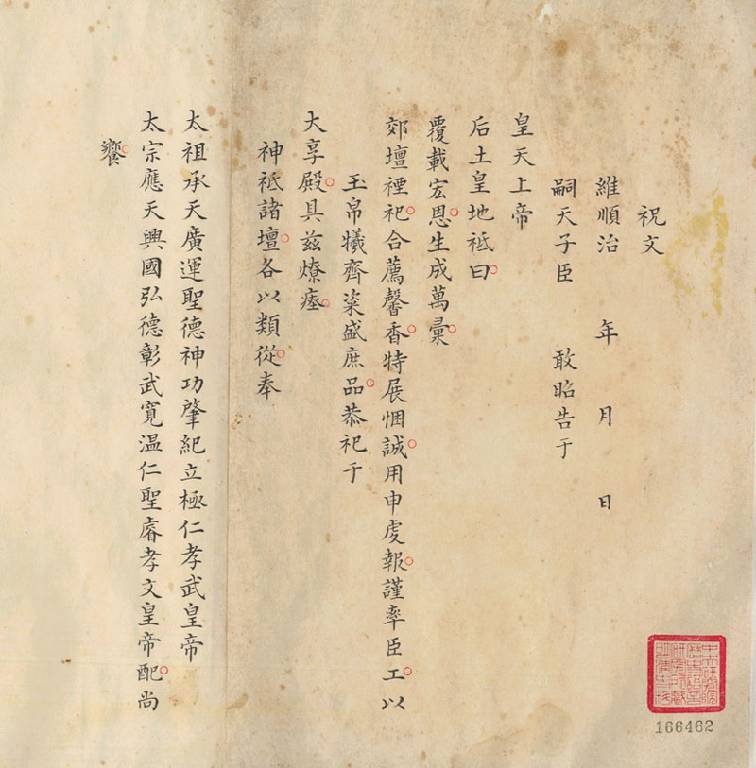 祝文
維順治　年　月　日
嗣天子臣　敢昭告于
皇天上帝
后土皇地祇曰
覆載宏恩生成萬彙
郊壇禋祀合薦馨香特展悃誠用申虔報謹率臣工以
玉帛犧齊粢盛庶品恭祀于
大享殿具茲燎瘞
神祇諸壇各以類從奉
太祖承天廣運聖德神功肇紀立極仁孝武皇帝
太宗應天興國弘德彰武寬温仁聖睿孝文皇帝配尚
饗
166462